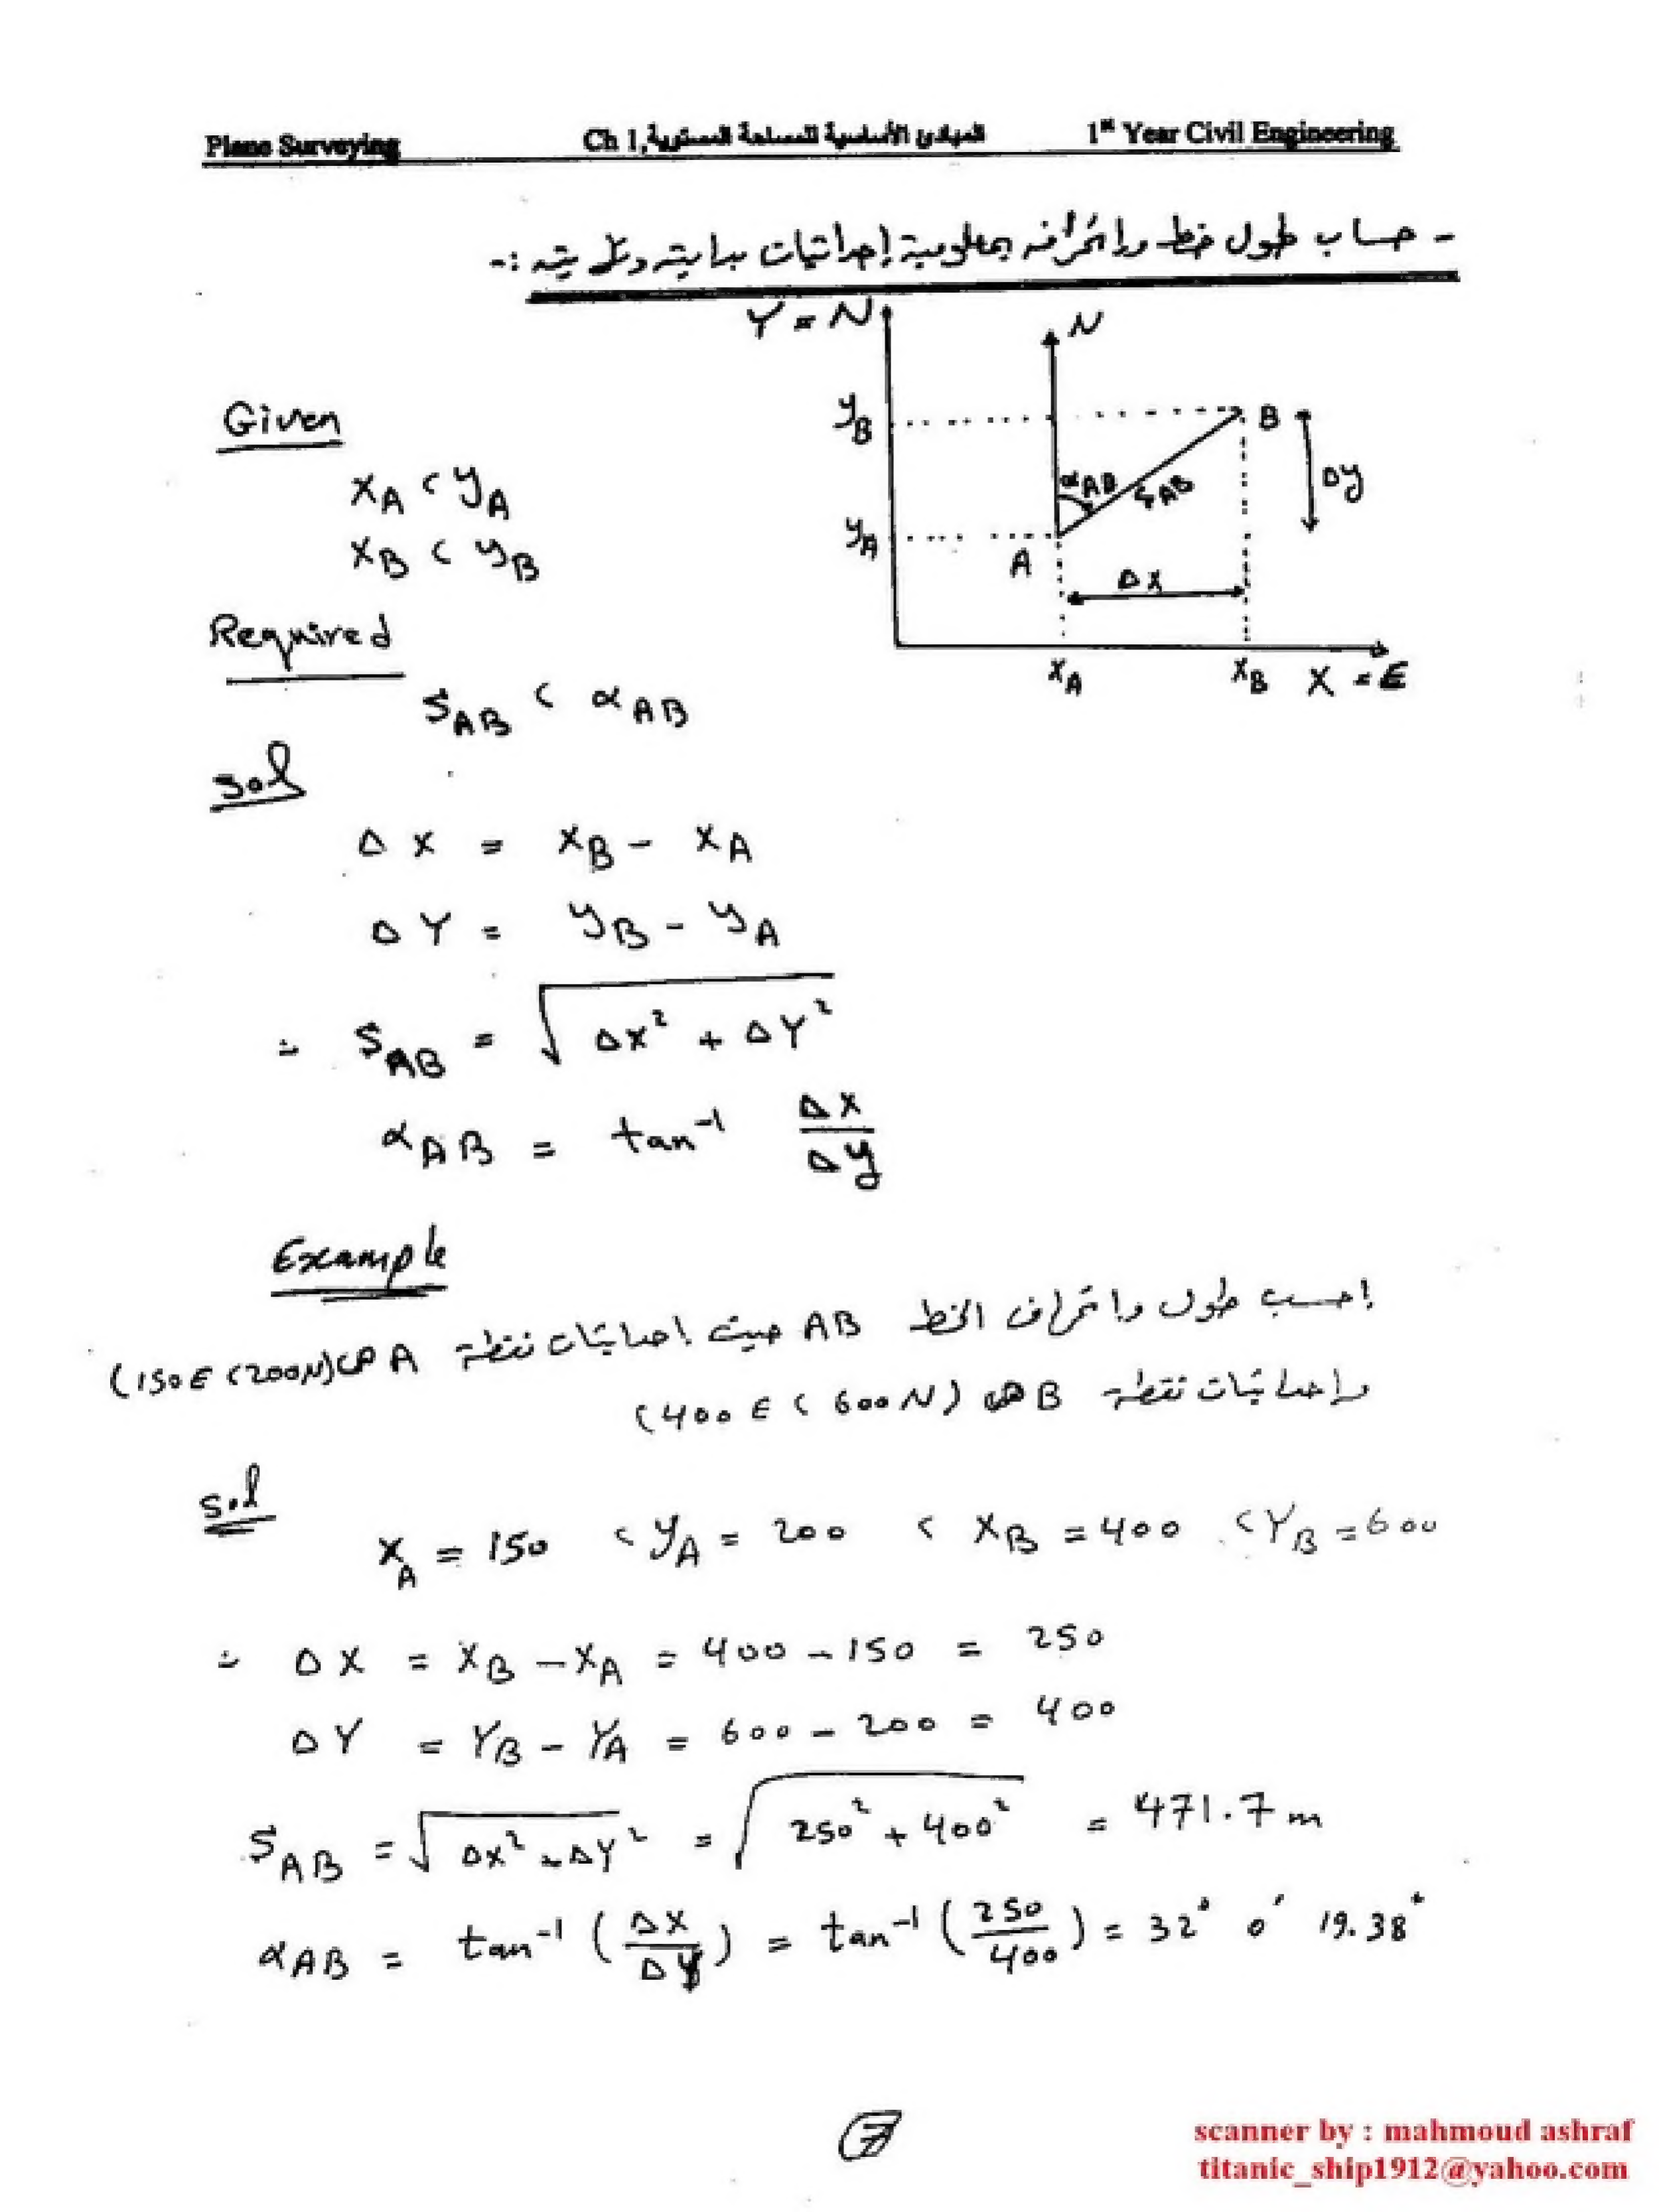 Plane Surveying
Ch 1, المبادئ الأساسية للمساحة المستوية
1st Year Civil Engineering
- حساب طول خط وانحرافه بمعلومية إحداثيات بدايته ونهايته :-
Y = N
N
yB
B
Δy
αAB
SAB
yA
A
Δx
xA
xB
X = E
Given
xA , yA
xB , yB
Required
SAB , αAB
Sol
Δx = xB - xA
ΔY = yB - yA
∴ SAB = √ΔX² + ΔY²
αAB = tan⁻¹ Δx/Δy
Example
احسب طول وانحراف الخط AB حيث احداثيات نقطة A هي (150E , 200N)
واحداثيات نقطة B هي (400E , 600N)
sol
XA = 150 , yA = 200 , XB = 400 , YB = 600
∴ ΔX = XB - XA = 400 - 150 = 250
ΔY = YB - YA = 600 - 200 = 400
SAB = √ΔX² + ΔY² = √250² + 400² = 471.7 m
αAB = tan⁻¹ (ΔX/ΔY) = tan⁻¹ (250/400) = 32° 0' 19.38"
7
scanner by : mahmoud ashraf
titanic_ship1912@yahoo.com